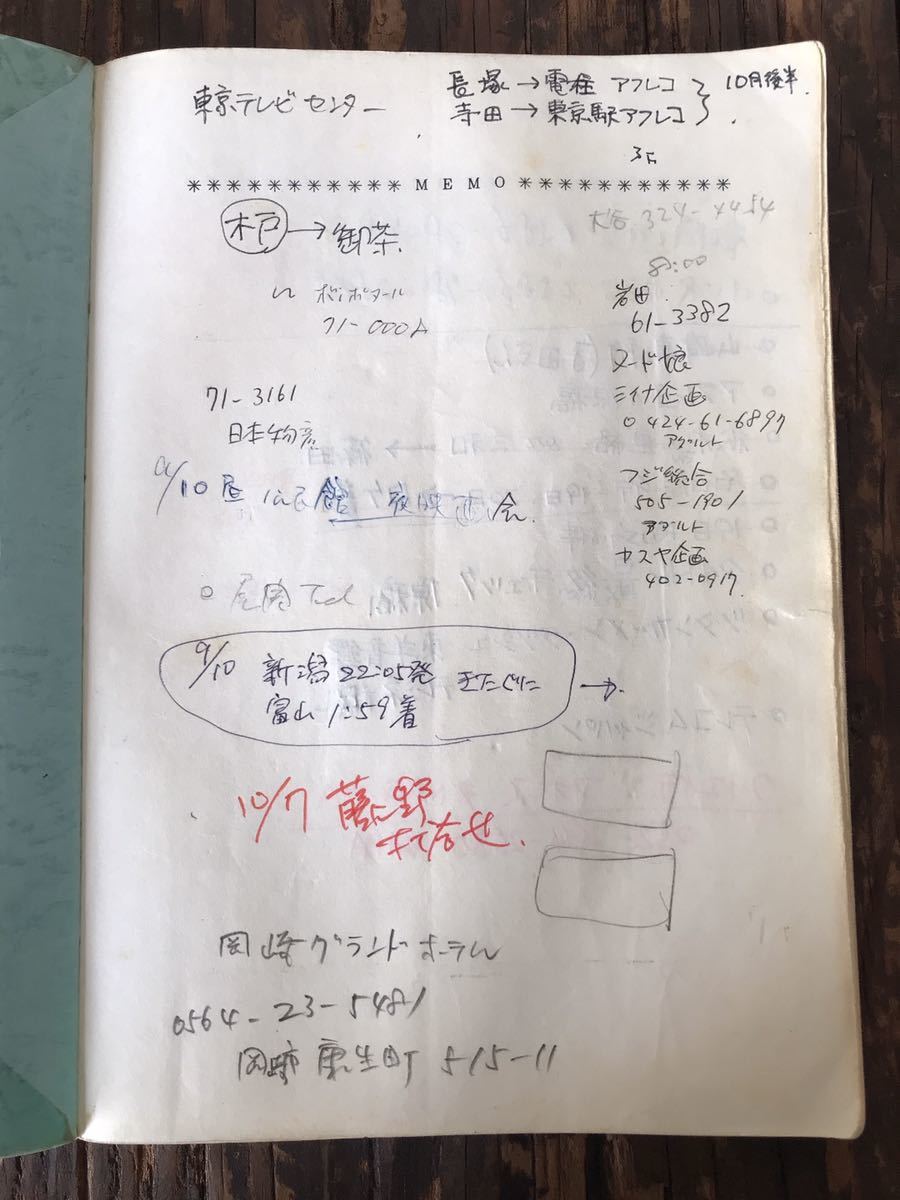 東京テレビセンター
長塚→電柱 アフレコ
寺田→東京駅アフレコ
10月後半.
************ MEMO ************
木戸→御茶
大谷 324-4454
8:00
岩田
61-3382
71-000A
ヌード娘
ミイナ企画
0424-61-6897
アダルト
71-3161
日本物産
フジ総合
505-1901
アダルト
9/10 昼 公民館 夜映画会.
ヤスヤ企画
402-0917
9/10 新潟 22:05発 きたぐに →
富山 1:59着
10/7 藤野
打合せ.
岡崎グランドホテル
0564-23-5481
岡崎市 康生町 515-11